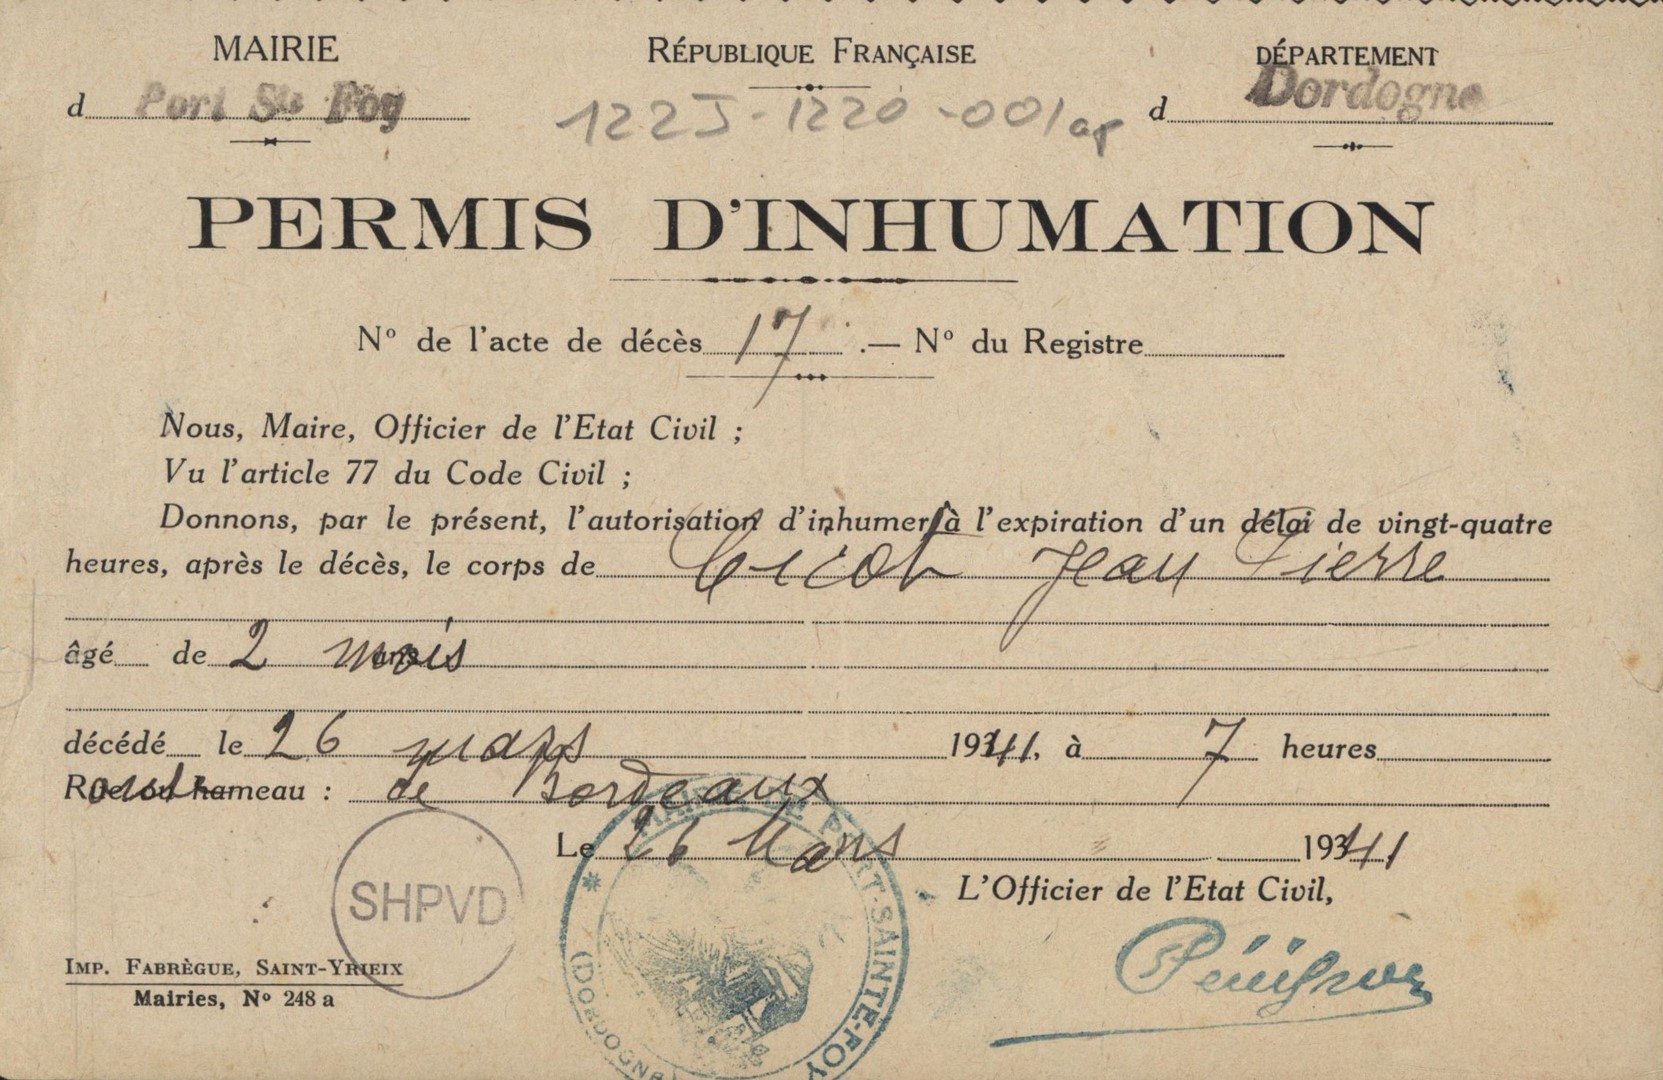 MAIRIE
RÉPUBLIQUE FRANÇAISE
DÉPARTEMENT
d Port Ste Foy
1223-1220-001 ar
d Dordogne
PERMIS D'INHUMATION
N° de l'acte de décès 17 .— N° du Registre
Nous, Maire, Officier de l'Etat Civil ;
Vu l'article 77 du Code Civil ;
Donnons, par le présent, l'autorisation d'inhumer, à l'expiration d'un délai de vingt-quatre
heures, après le décès, le corps de Jean Pierre
âgé de 2 mois
décédé le 26 mars 1941, à 7 heures
Rue ou hameau : de Bordeaux
Le 26 Mars 1941
L'Officier de l'Etat Civil,
SHPVD
MAIRIE DE PORT-SAINTE-FOY
(DORDOGNE)
IMP. FABRÈGUE, SAINT-YRIEIX
Mairies, N° 248 a